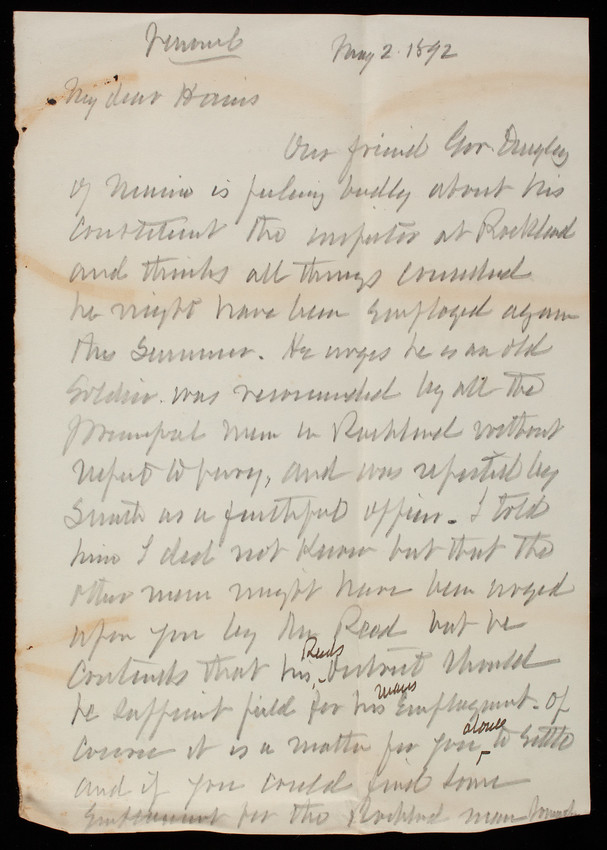 May 2. 1892
My dear
Our friend Gov. Dingley
of Maine is feeling badly about his
constituent the inspector at Rockland
and thinks all things considered
he might have been employed again
this Summer. He urges he is an old
Soldier. was recommended by all the
principal men in Rockland without
respect to party, and was reported by
Smith as a faithful officer. I told
him I did not know but that the
other man might have been urged
upon you by Mr Reed but he
contends that his Reeds District should
be sufficient field for his mans Employment. of
course it is a matter for you alone to settle
and if you could find some
for the Rockland man